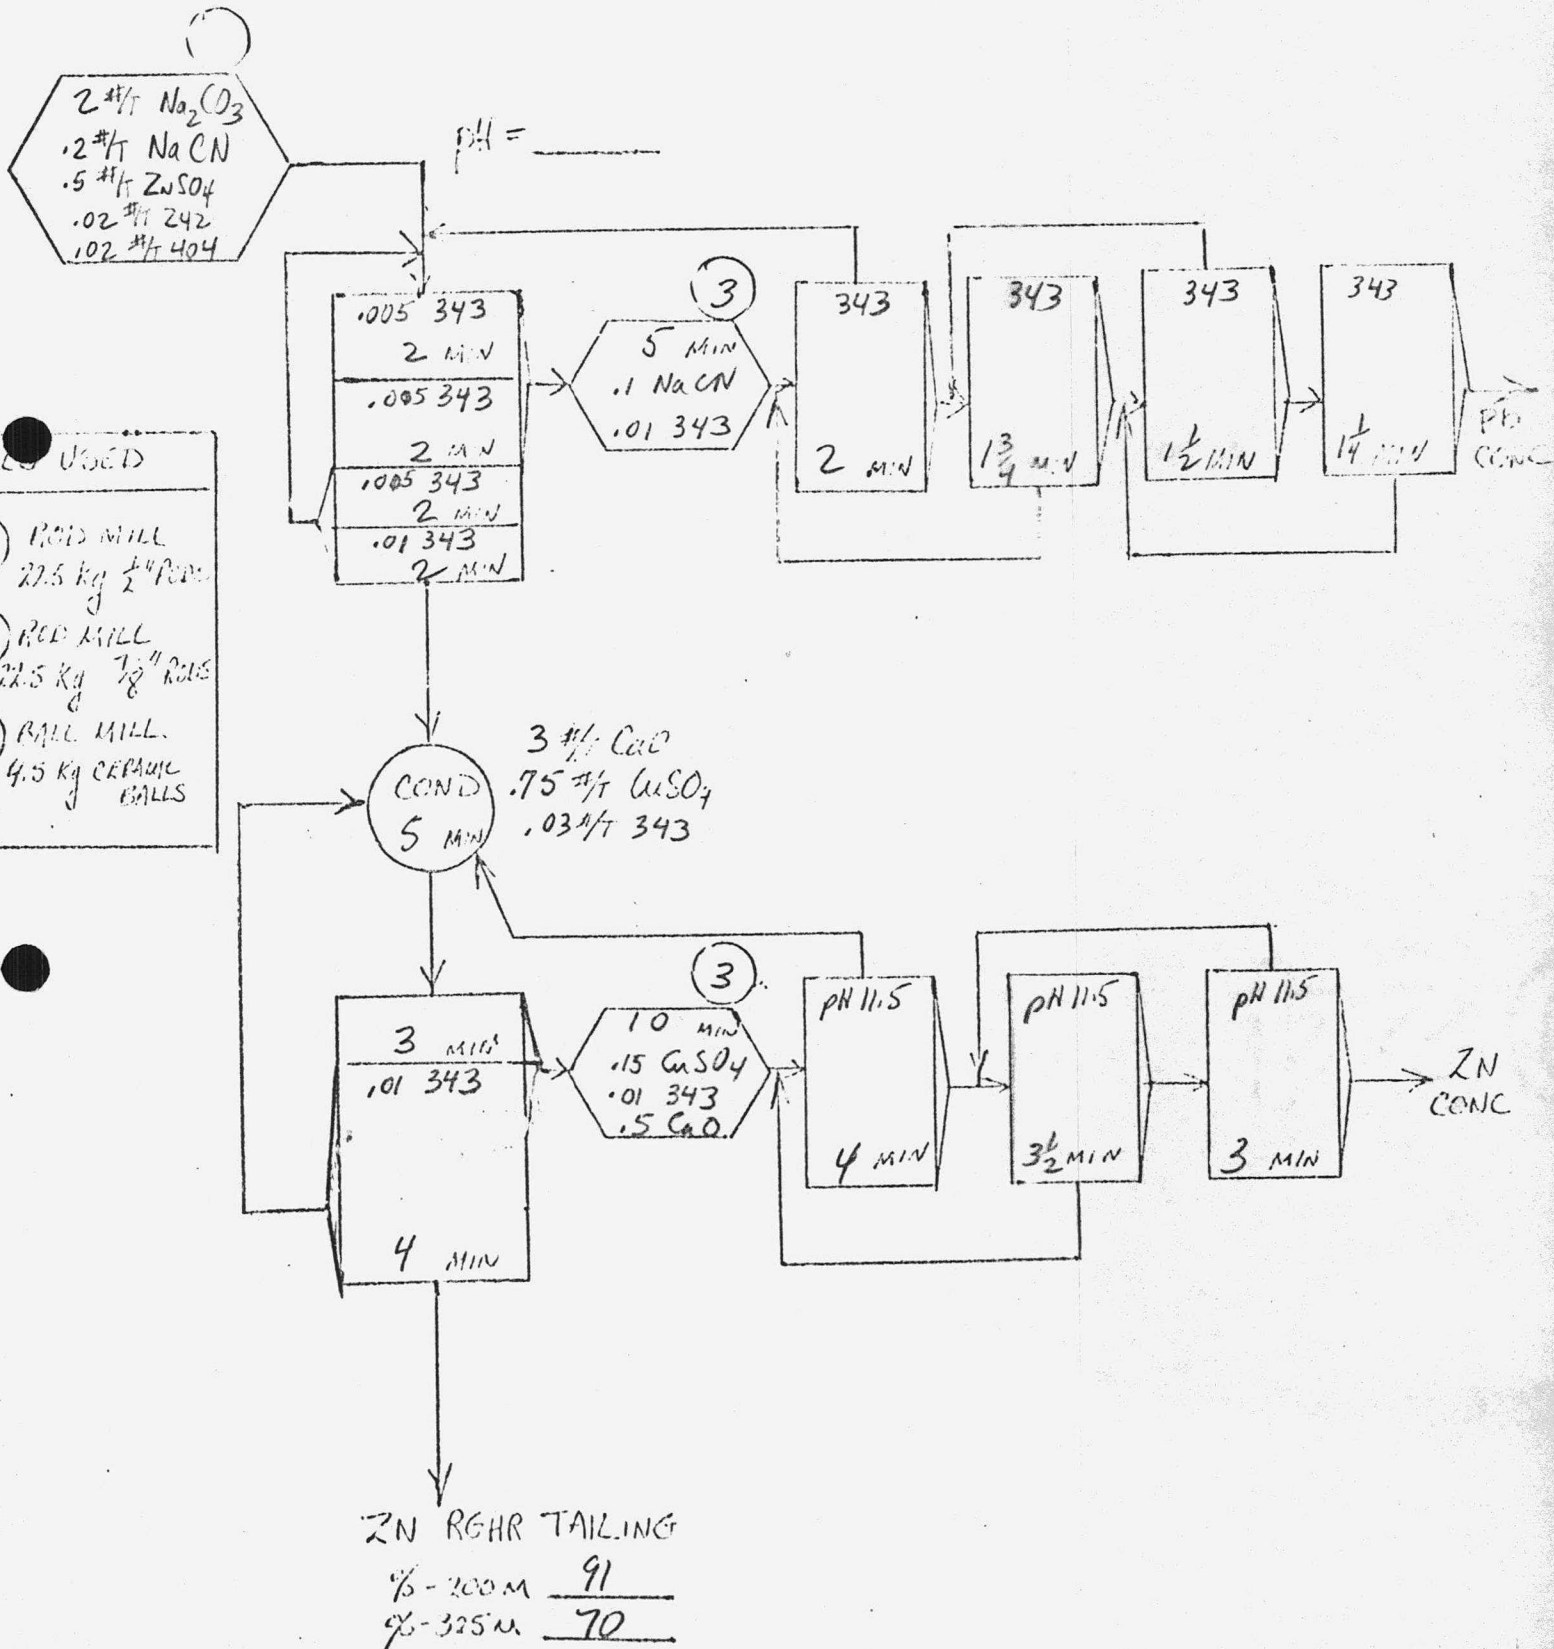 2 #/T Na2CO3
.2 #/T NaCN
.5 #/T ZNSO4
.02 #/T 242
.02 #/T 404
pH = ____
.005 343
2 MIN
.005 343
2 MIN
.005 343
2 MIN
.01 343
2 MIN
3
5 MIN
.1 NaCN
.01 343
343
2 MIN
343
1 3/4 MIN
343
1 1/2 MIN
343
1 1/4 MIN
PB
CONC
USED
ROD MILL
22.5 Kg 1/2" RODS
ROD MILL
22.5 Kg 7/8" RODS
BALL MILL.
4.5 Kg CERAMIC
BALLS
COND
5 MIN
3 #/T CaO
.75 #/T CuSO4
.03 #/T 343
3 MIN
.01 343
4 MIN
3
10 MIN
.15 CuSO4
.01 343
.5 CaO
pH 11.5
4 MIN
pH 11.5
3 1/2 MIN
pH 11.5
3 MIN
ZN
CONC
ZN RGHR TAILING
%-200M 91
%-325M 70